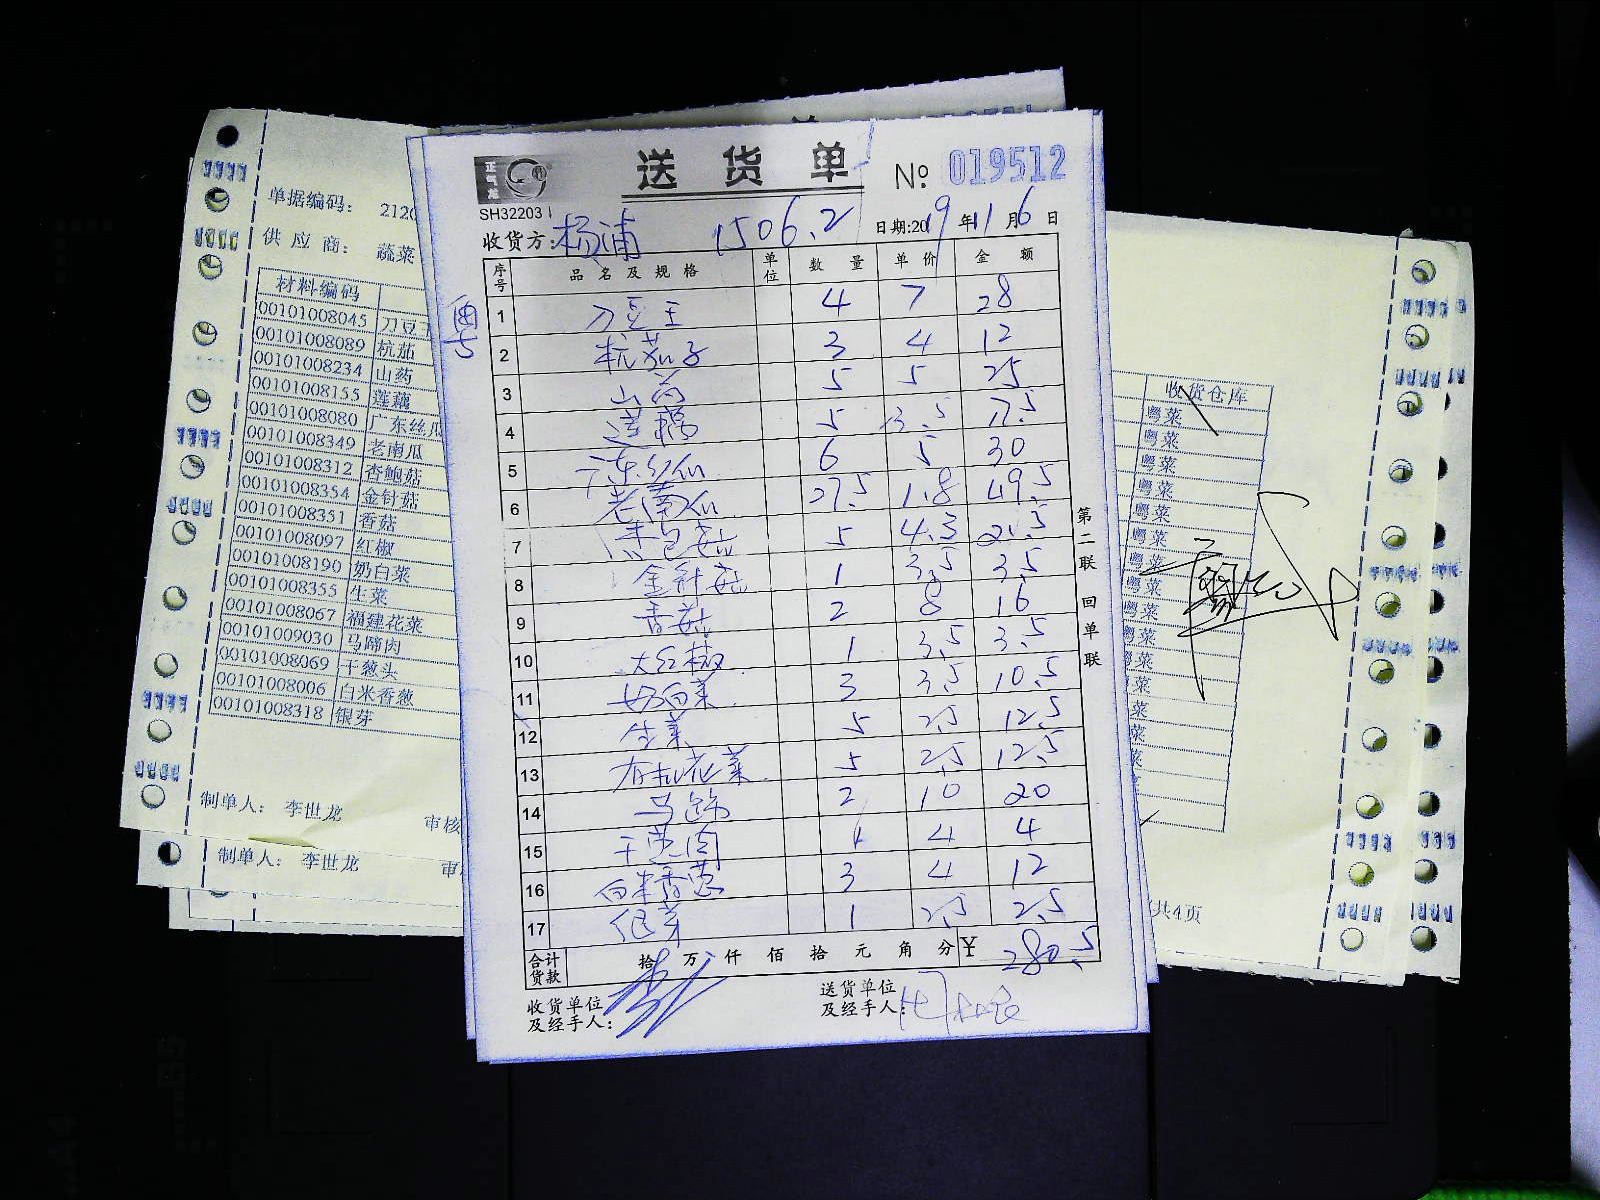 送货单
№ 019512
正气龙
SH32203
收货方: 杨浦 1506.2 日期:2019年11月6日
粤
序号 品名及规格 单位 数量 单价 金额
1 刀豆王 4 7 28
2 杭茄子 3 4 12
3 山药 5 5 25
4 莲藕 5 3.5 17.5
5 广东丝瓜 6 5 30
6 老南瓜 27.5 1.8 49.5
7 杏包菇 5 4.3 21.5
8 金针菇 1 3.5 3.5
9 香菇 2 8 16
10 大红椒 1 3.5 3.5
11 奶白菜 3 3.5 10.5
12 生菜 5 2.5 12.5
13 有机花菜 5 2.5 12.5
14 马蹄 2 10 20
15 干葱肉 1 4 4
16 白米香葱 3 4 12
17 银芽 1 2.5 2.5
合计货款 拾 万 仟 佰 拾 元 角 分 ¥ 280.5
收货单位及经手人:
送货单位及经手人:
第二联 回单联
单据编码: 2120
供应商: 蔬菜
材料编码
00101008045 刀豆王
00101008089 杭茄
00101008234 山药
00101008155 莲藕
00101008080 广东丝瓜
00101008349 老南瓜
00101008312 杏鲍菇
00101008354 金针菇
00101008351 香菇
00101008097 红椒
00101008190 奶白菜
00101008355 生菜
00101008067 福建花菜
00101009030 马蹄肉
00101008069 干葱头
00101008006 白米香葱
00101008318 银芽
制单人: 李世龙 审核
制单人: 李世龙 审
收货仓库
粤菜
粤菜
粤菜
粤菜
粤菜
粤菜
粤菜
粤菜
粤菜
粤菜
粤菜
粤菜
菜
菜
菜
共4页